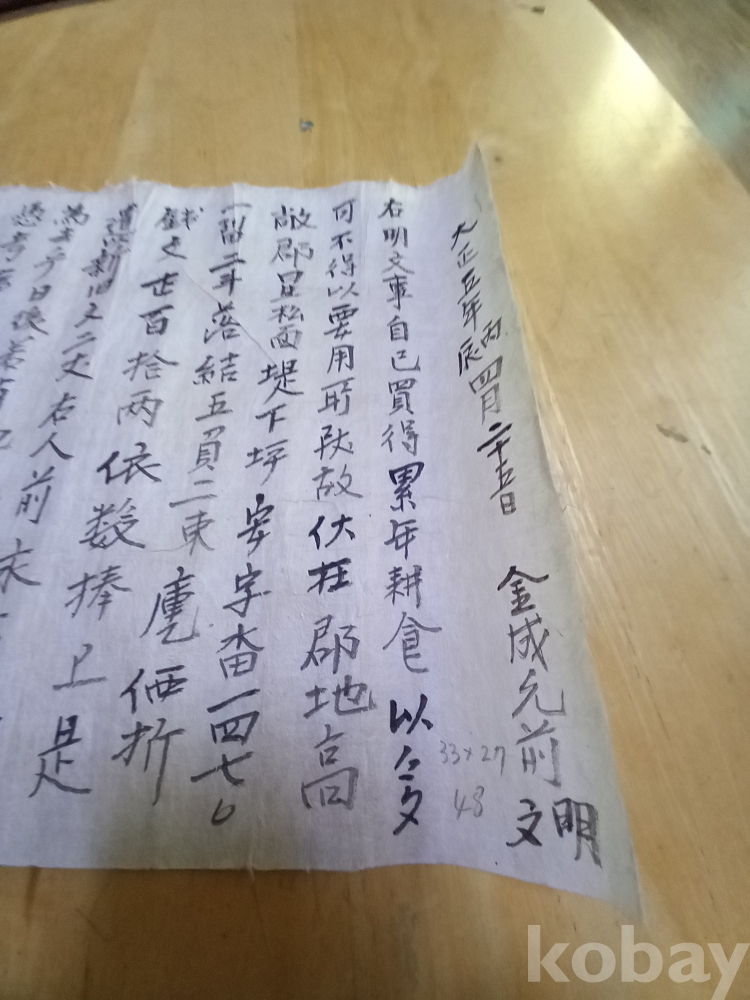 大正五年丙辰四月二十五日 金成允前
明文
右明文事自己買得累年耕食以多
可不得以要用所致故伏在郡地高
郡 松面堤下坪 字畓一四七
二斗落結五負二束 価折
錢文 百拾兩依数捧上是
新旧文二丈右人前
為去乎日後若有
33×27
48
kobay